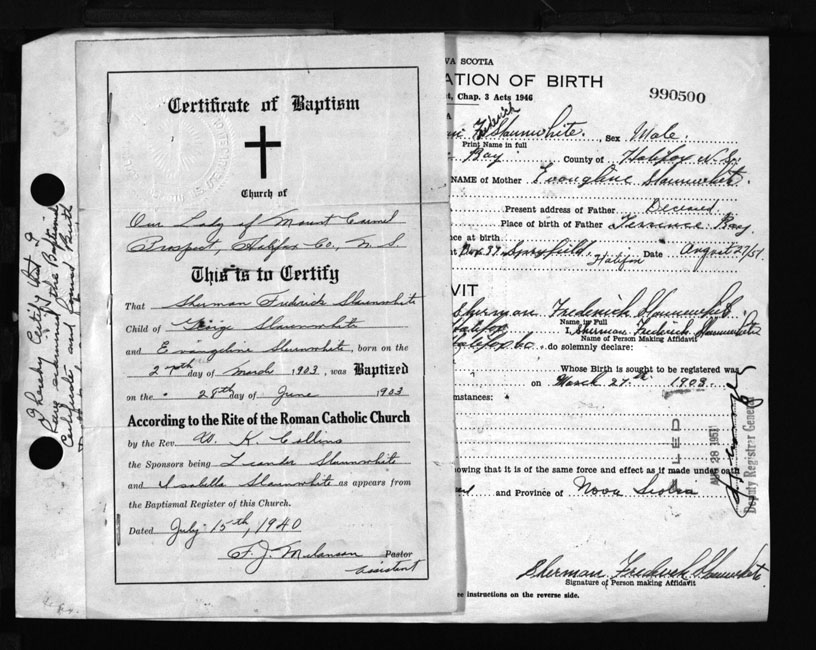 Certificate of Baptism
Church of
Our Lady of Mount Carmel
Prospect, Halifax Co., N. S.
This is to Certify
That Sherman Fredrick Slaunwhite
Child of Slaunwhite
and Evangeline Slaunwhite, born on the
27th day of March 1903, was Baptized
on the 28th day of June 1903
According to the Rite of the Roman Catholic Church
by the Rev. W. K. Collins
the Sponsors being Leander Slaunwhite
and Isabelle Slaunwhite as appears from
the Baptismal Register of this Church.
Dated July 15th, 1940
F. J. Melanson Pastor
assistant
I hereby Certify that I
have examined the Baptismal
Certificate and found Birth
VA SCOTIA
ATION OF BIRTH
, Chap. 3 Acts 1946
990500
Frederick Slaunwhite, Sex Male.
Print Name in full
Bay County of Halifax N.S.
NAME of Mother Evangline Slaunwhite.
Present address of Father Deceased
Place of birth of Father Terrence Bay
ce at birth
Box 99 Spryfield, Halifax Date August 27/51
VIT
Sherman Frederick Slaunwhite
Name in Full
Halifax I, Sherman Frederick Slaunwhite
Name of Person Making Affidavit
Halifax Co. do solemnly declare:
Whose Birth is sought to be registered was
on March 27th 1903.
cumstances:
LED
AUG 28 1951
Deputy Registrar General
nowing that it is of the same force and effect as if made under oath
and Province of Nova Scotia
Sherman Frederick Slaunwhite
Signature of Person making Affidavit
e instructions on the reverse side.